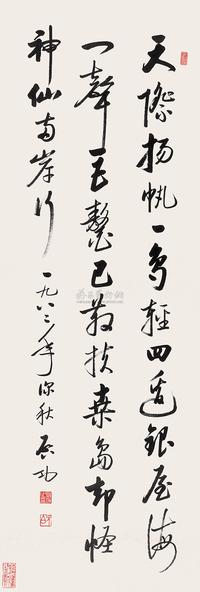 天際揚帆一鳥輕四邊銀屋海
一聲巨鰲已扶桑島却怪
神仙岸行
一九八三年深秋 啟功